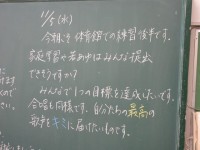 11/5(水)
今朝は体育館での練習後半です。
家庭学習や若あゆはみんな提出
できそうですか?
みんなで1つの目標を達成したいです。
合唱も同様です。自分たちの最高の
歌声をキミに届けたいものです。